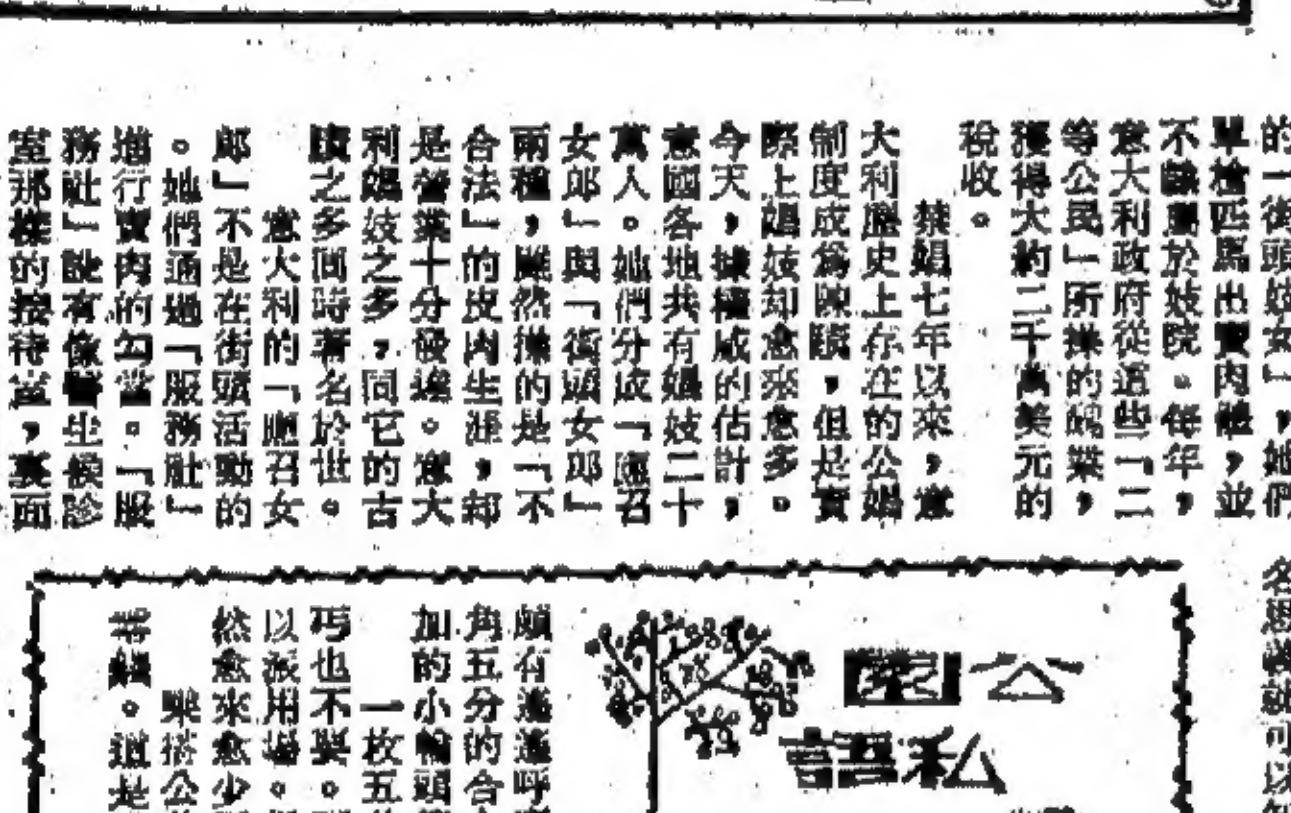 的一街頭妓女」,她們
單槍匹馬出賣肉體,並
不隸屬於妓院。每年,
意大利政府從這些「二
等公民」所操的醜業,
獲得大約二千萬美元的
稅收。
禁娼七年以來,意
大利歷史上存在的公娼
制度成爲陳蹟,但是實
際上娼妓却愈來愈多。
今天,據權威的估計,
意國各地共有娼妓二十
萬人。她們分成「應召
女郎」與「街頭女郎」
兩種,雖然操的是「不
合法」的皮肉生涯,却
是營業十分發達。意大
利娼妓之多,同它的古
蹟之多同時著名於世。
意大利的「應召女
郎」不是在街頭活動的
。她們通過「服務社」
進行賣肉的勾當。「服
務社」設有像醫生候診
室那樣的接待室,裏面
名思義就可以知
公園
私語
頗有
角五分的合
加的小輪
一枚五
丐也不要。
以派用場。
然愈來愈少
樂搭公
等艙。這是